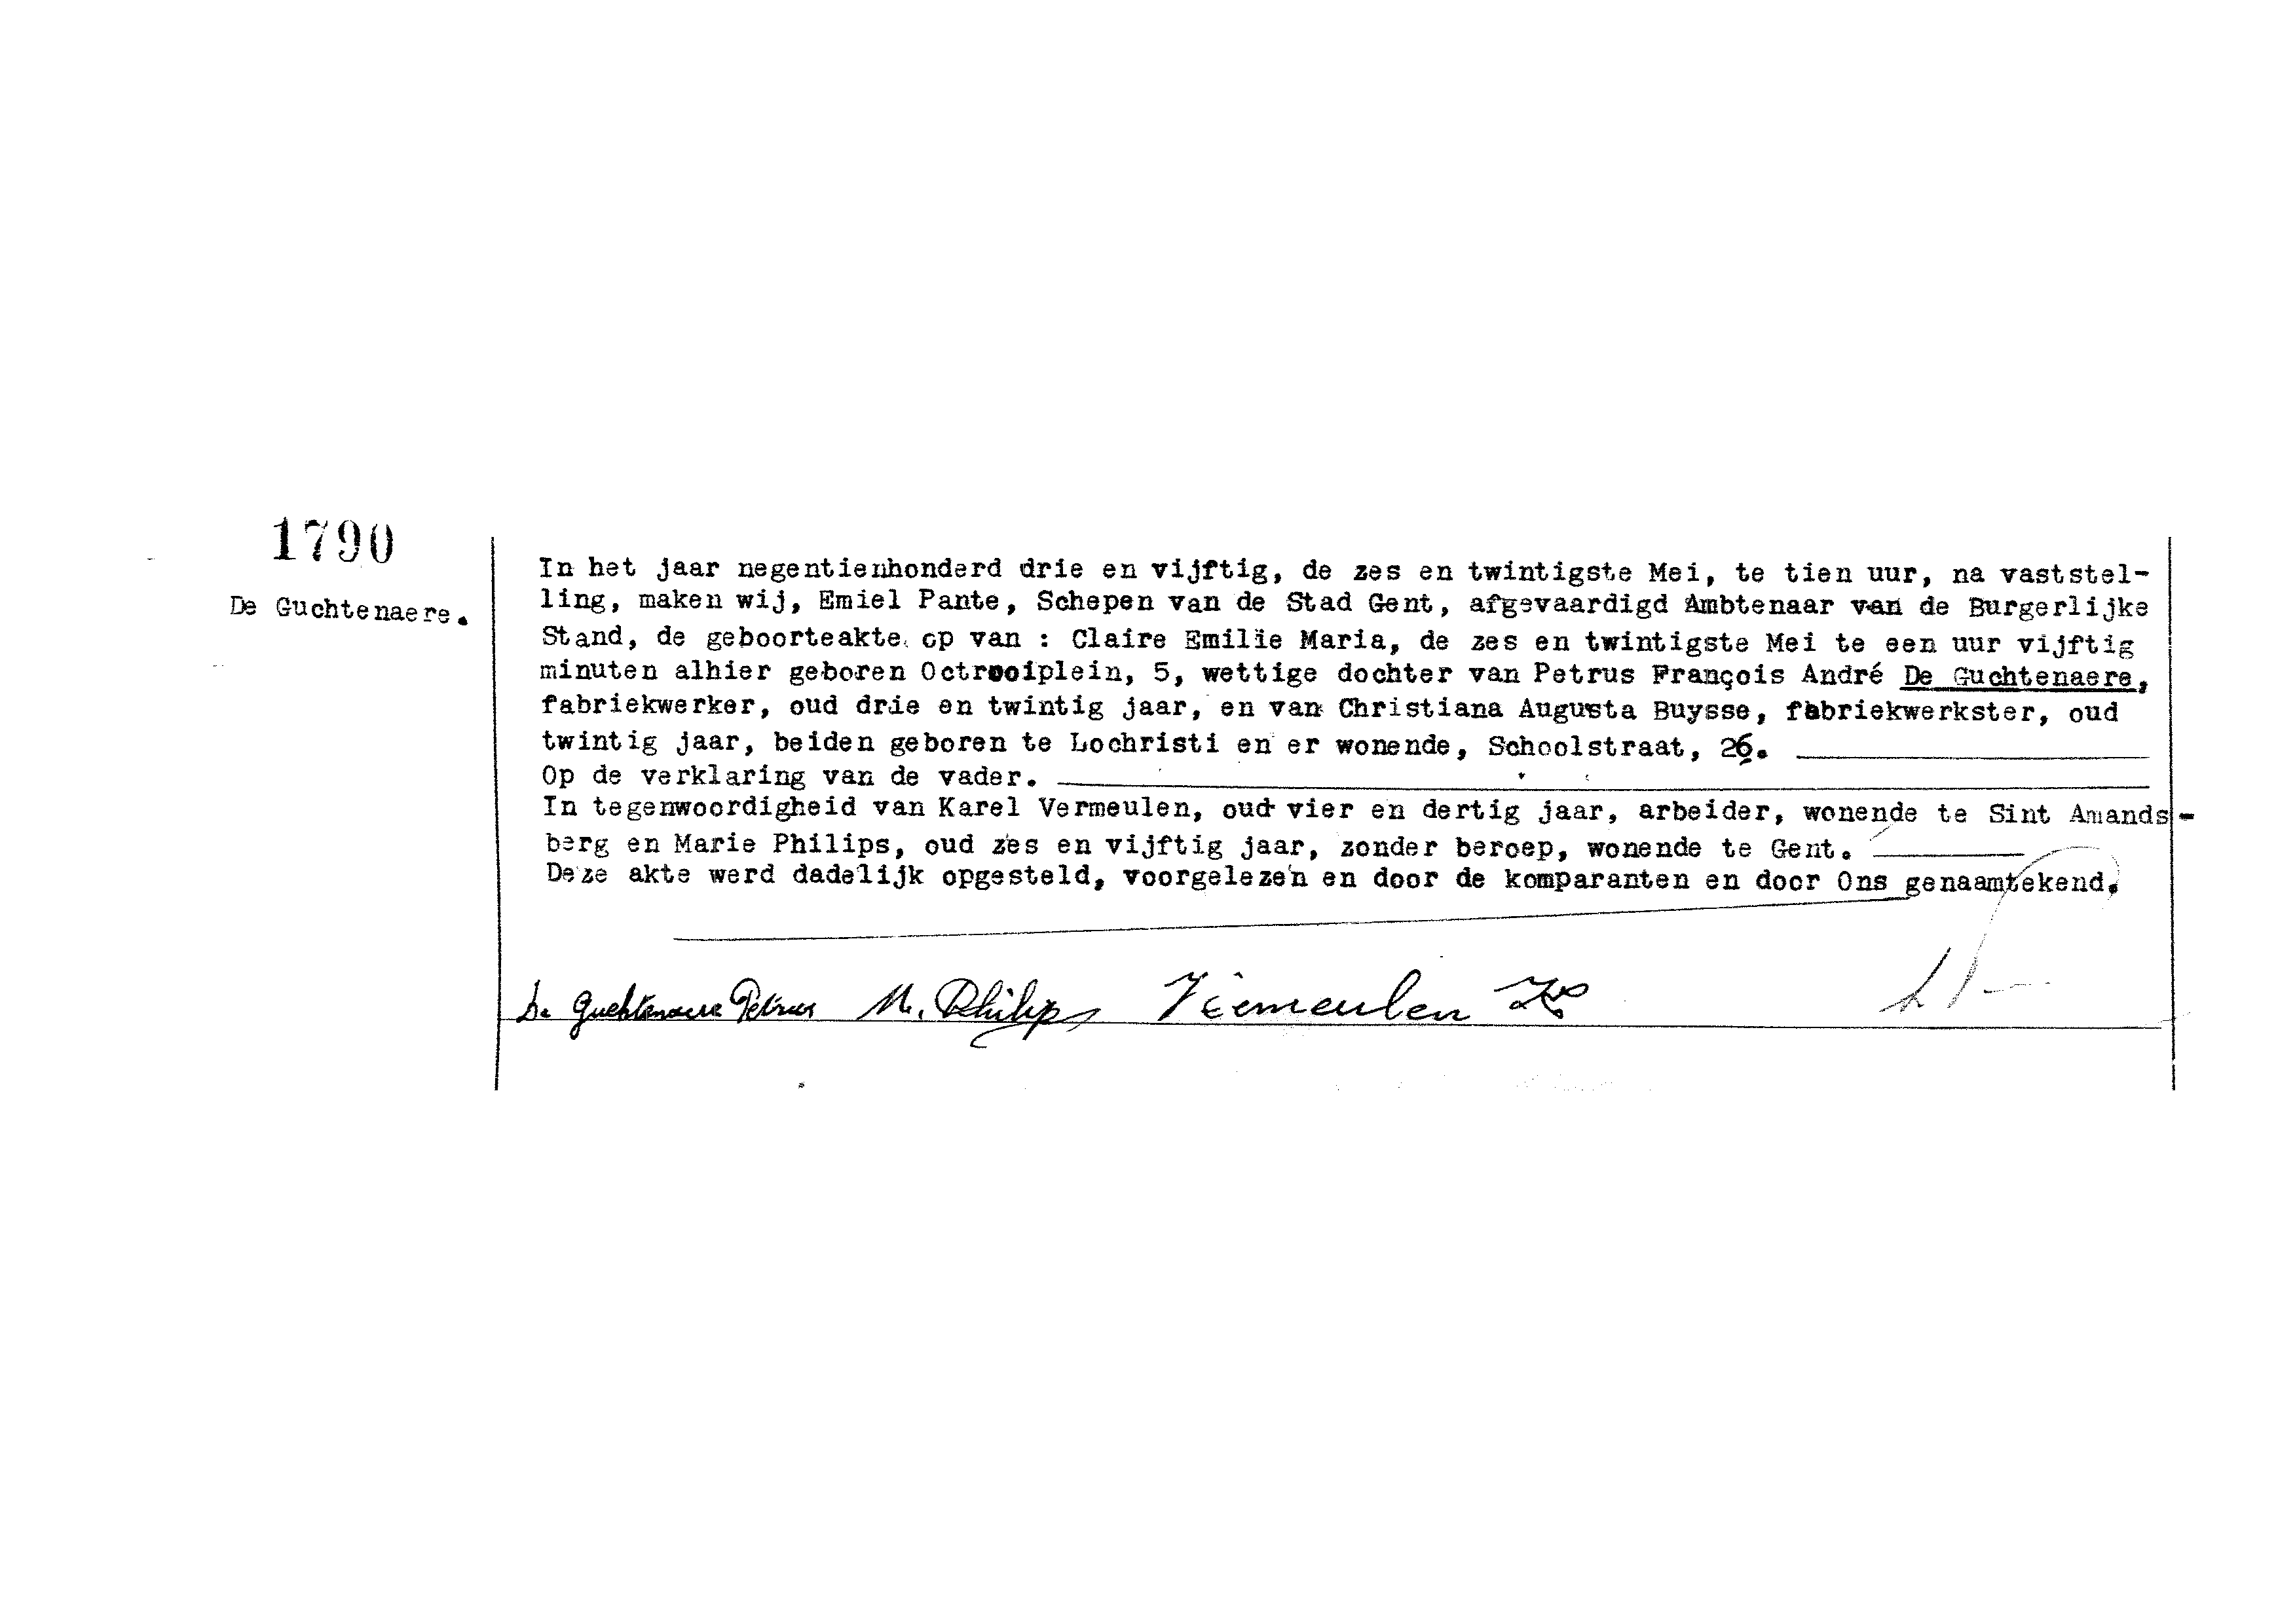 1790
De Guchtenaere.
In het jaar negentienhonderd drie en vijftig, de zes en twintigste Mei, te tien uur, na vaststel-
ling, maken wij, Emiel Pante, Schepen van de Stad Gent, afgevaardigd Ambtenaar van de Burgerlijke
Stand, de geboorteakte op van : Claire Emilie Maria, de zes en twintigste Mei te een uur vijftig
minuten alhier geboren Octrooiplein, 5, wettige dochter van Petrus François André De Guchtenaere,
fabriekwerker, oud drie en twintig jaar, en van Christiana Augusta Buysse, fabriekwerkster, oud
twintig jaar, beiden geboren te Lochristi en er wonende, Schoolstraat, 26.
Op de verklaring van de vader.
In tegenwoordigheid van Karel Vermeulen, oud vier en dertig jaar, arbeider, wonende te Sint Amands-
berg en Marie Philips, oud zes en vijftig jaar, zonder beroep, wonende te Gent.
Deze akte werd dadelijk opgesteld, voorgelezen en door de komparanten en door Ons genaamtekend.
De Guchtenaere Petrus M. Philips Vermeulen